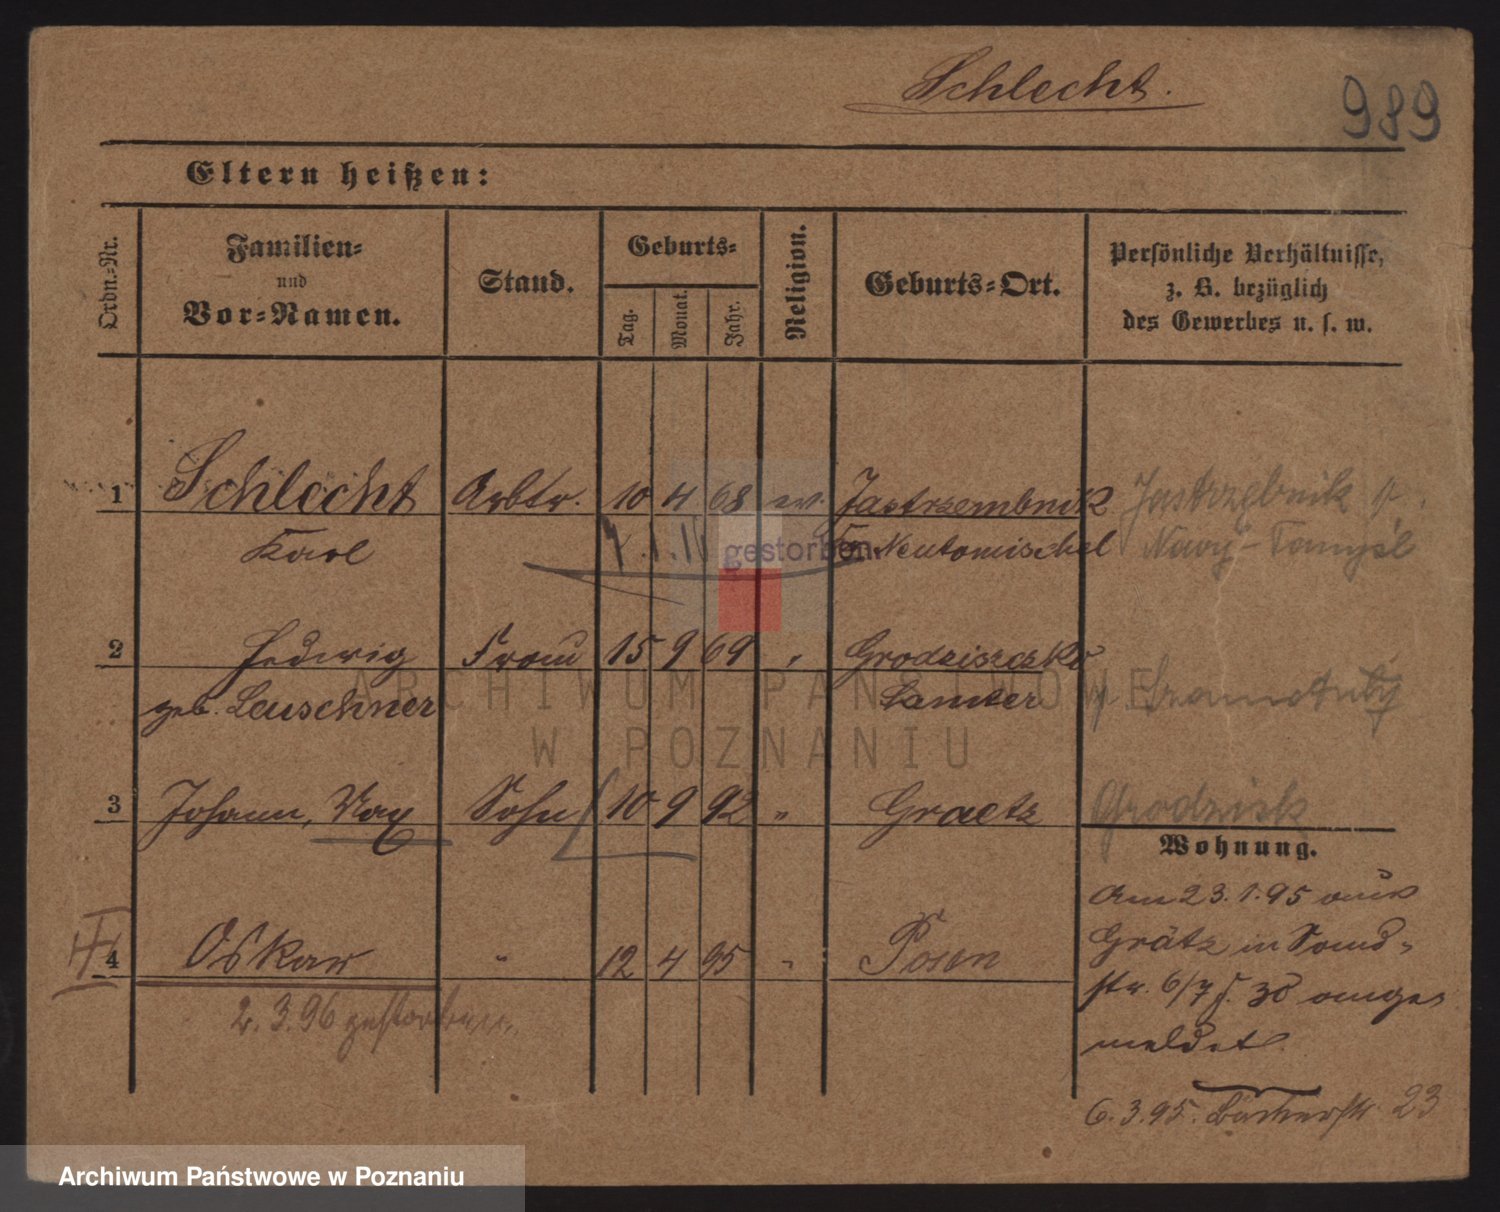 Schlecht.
989
Eltern heißen:
Ordn.-Nr.
Familien-
und
Vor-Namen.
Stand.
Geburts-
Tag.
Monat.
Jahr.
Religion.
Geburts-Ort.
Persönliche Verhältnisse,
z. B. bezüglich
des Gewerbes u. s. w.
1 Schlecht Arbtr. 10 4 68 ev. Jastrzembnik Jastrzębnik p.
Karl gestorben Kr. Neutomischel Nowy-Tomyśl
2 Hedwig Frau 15 9 69 " Grodziszczko
geb. Leuschner Samter p. Szamotuły
ARCHIWUM PAŃSTWOWE
W POZNANIU
3 Johann, Max Sohn 10 9 92 " Graetz Grodzisk
Wohnung.
Am 23.1.95 aus
Grätz in Sand-
str. 6/7 f. 30 ange-
meldet.
4 Oskar " 12 4 95 " Posen
2.3.96 gestorben.
6.3.95. 23
Archiwum Państwowe w Poznaniu